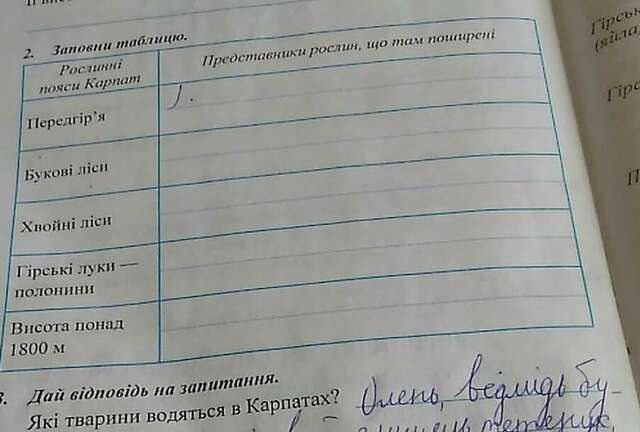 2. Заповни таблицю.
Рослинні пояси Карпат
Представники рослин, що там поширені
Передгір’я
Букові ліси
Хвойні ліси
Гірські луки —
полонини
Висота понад
1800 м
Дай відповідь на запитання.
Які тварини водяться в Карпатах? Олень, ведмідь бу-
Гірськ
(яйла
Гірс